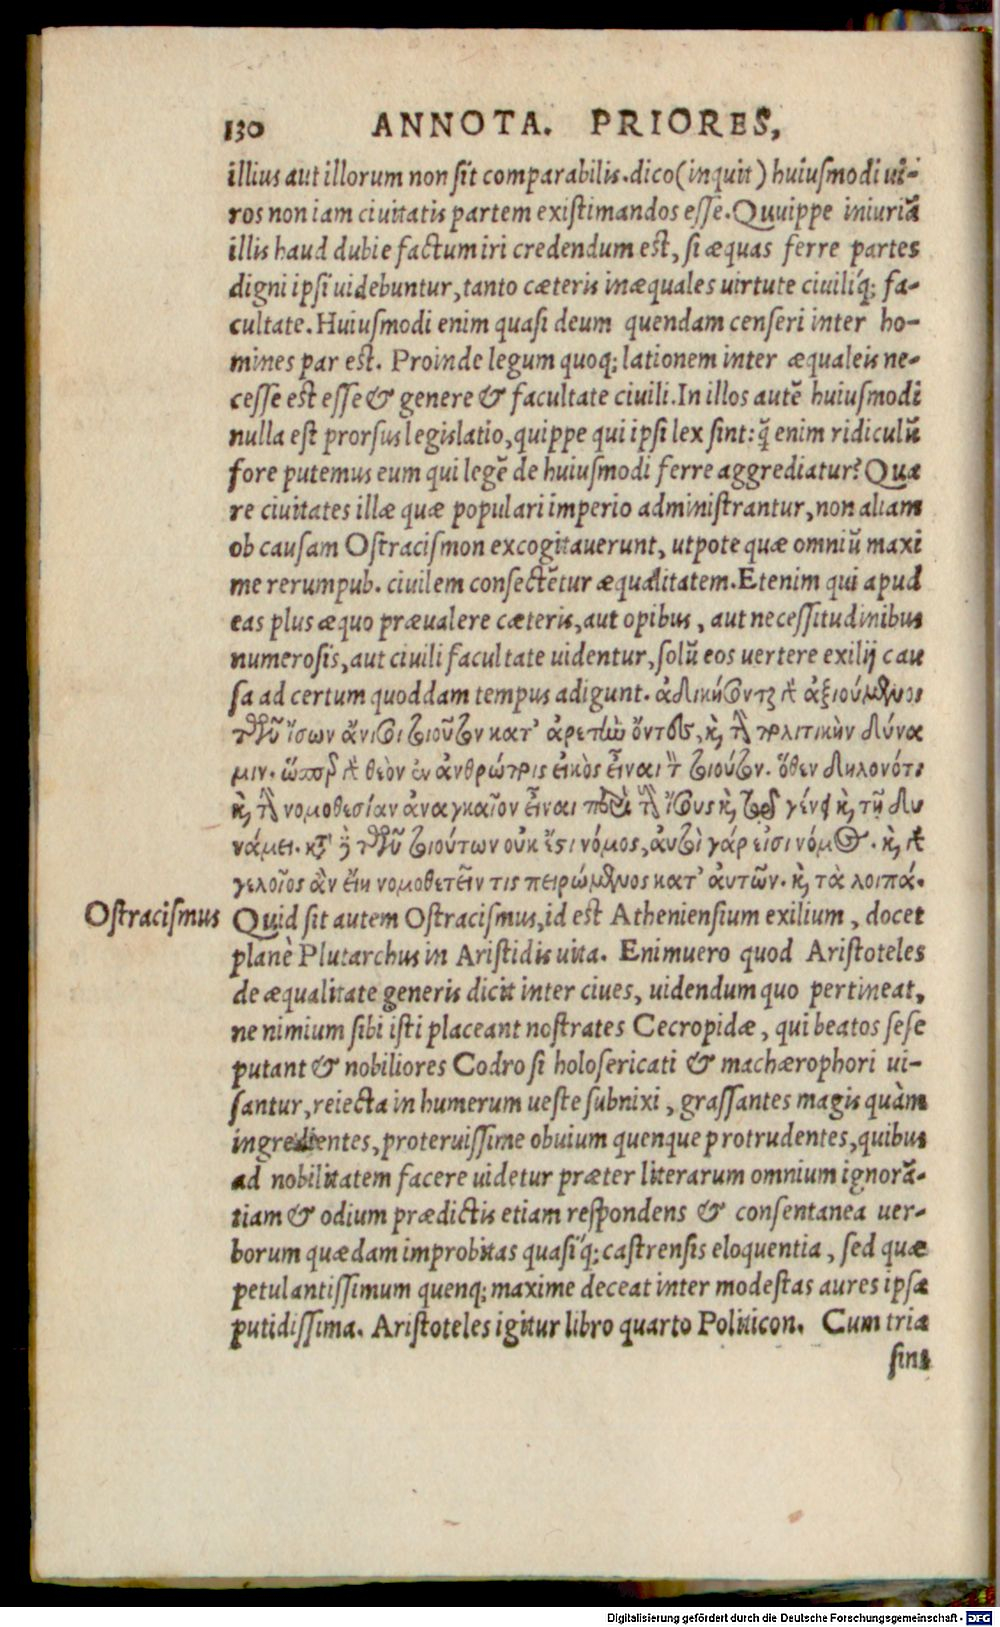 130 ANNOTA. PRIORES,
illius aut illorum non sit comparabilis. dico (inquit) huiusmodi ui-
ros non iam ciuitatis partem existimandos esse. Quuippe iniuriā
illis haud dubie factum iri credendum est, si æquas ferre partes
digni ipsi uidebuntur, tanto cæteris inæquales uirtute ciuiliq́; fa-
cultate. Huiusmodi enim quasi deum quendam censeri inter ho-
mines par est. Proinde legum quoq; lationem inter æqualeis ne-
cesse est esse & genere & facultate ciuili. In illos autē huiusmodi
nulla est prorsus legislatio, quippe qui ipsi lex sint: q̄ enim ridiculū
fore putemus eum qui legē de huiusmodi ferre aggrediatur? Qua
re ciuitates illæ quæ populari imperio administrantur, non aliam
ob causam Ostracismon excogitauerunt, utpote quæ omniū maxi
me rerumpub. ciuilem consectētur æqualitatem. Etenim qui apud
eas plus æquo præualere cæteris, aut opibus, aut necessitudinibus
numerosis, aut ciuili facultate uidentur, solū eos uertere exilij cau
sa ad certum quoddam tempus adigunt. ἀδικήσονται γὰρ ἀξιούμενοι
τῶν ἴσων ἄνισοι τοσοῦτον κατ' ἀρετὴν ὄντες, καὶ τὴν πολιτικὴν δύνα
μιν. ὥσπερ γὰρ θεὸν ἐν ἀνθρώποις εἰκὸς εἶναι τὸν τοιοῦτον. ὅθεν δηλονότι
καὶ τὴν νομοθεσίαν ἀναγκαῖον εἶναι περὶ τοὺς ἴσους καὶ τῷ γένει καὶ τῇ δυ
νάμει. κατὰ δὲ τῶν τοιούτων οὐκ ἔστι νόμος, αὐτοὶ γάρ εἰσι νόμος. καὶ γὰρ
γελοῖος ἂν εἴη νομοθετεῖν τις πειρώμενος κατ' αὐτῶν. καὶ τὰ λοιπά.
Ostracismus Quid sit autem Ostracismus, id est Atheniensium exilium, docet
planè Plutarchus in Aristidis uita. Enimuero quod Aristoteles
de æqualitate generis dicit inter ciues, uidendum quo pertineat,
ne nimium sibi isti placeant nostrates Cecropidæ, qui beatos sese
putant & nobiliores Codro si holosericati & machærophori ui-
santur, reiecta in humerum ueste subnixi, grassantes magis quàm
ingredientes, proteruissime obuium quenque protrudentes, quibus
ad nobilitatem facere uidetur præter literarum omnium ignorā-
tiam & odium prædictis etiam respondens & consentanea uer-
borum quædam improbitas quasiq́; castrensis eloquentia, sed quæ
petulantissimum quenq; maxime deceat inter modestas aures ipsa
putidissima. Aristoteles igitur libro quarto Politicon. Cum tria
sint
Digitalisierung gefördert durch die Deutsche Forschungsgemeinschaft - DFG